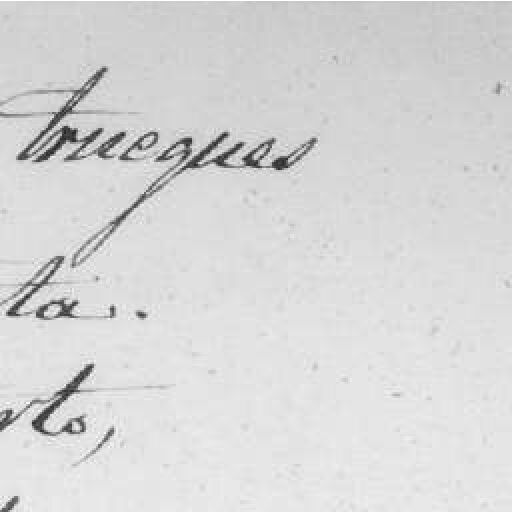 trueques
ta.
rto,